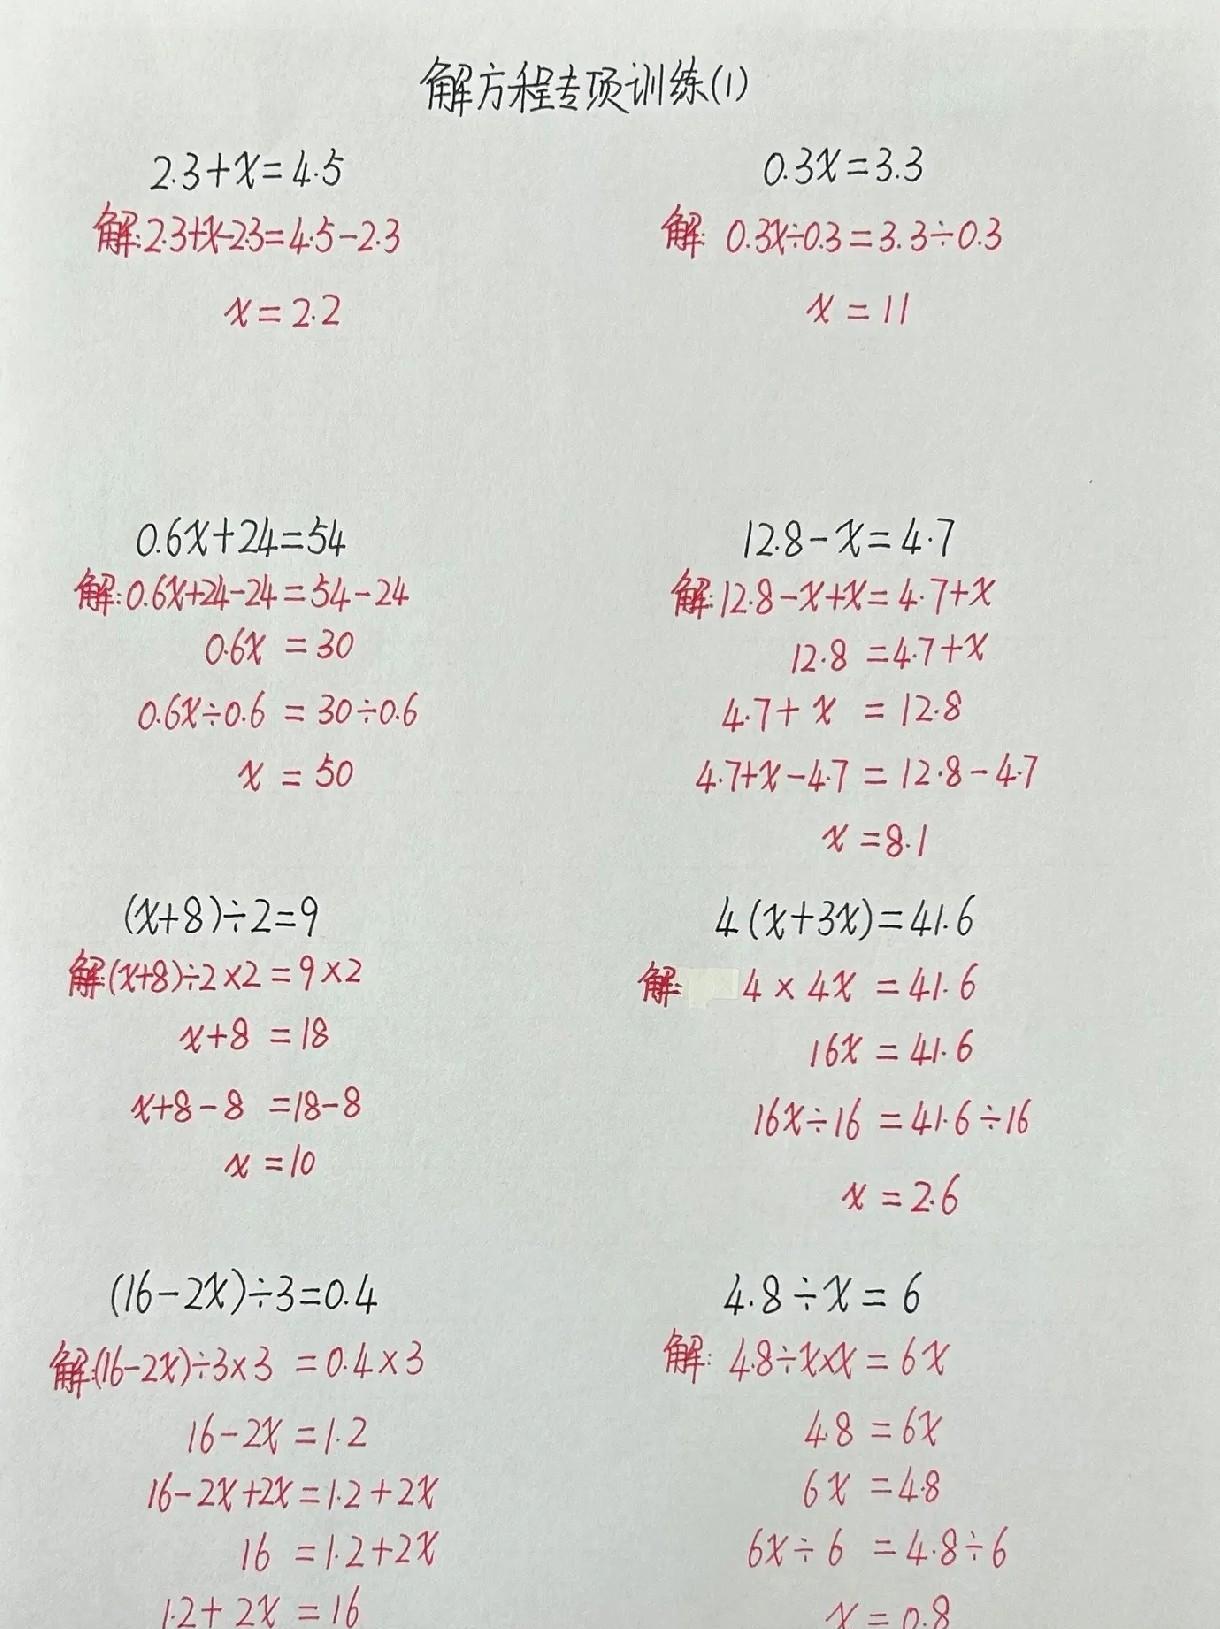 解方程专项训练(1)
2.3+x=4.5
解:2.3+x-2.3=4.5-2.3
x=2.2
0.3x=3.3
解: 0.3x÷0.3=3.3÷0.3
x=11
0.6x+24=54
解:0.6x+24-24=54-24
0.6x=30
0.6x÷0.6=30÷0.6
x=50
12.8-x=4.7
解:12.8-x+x=4.7+x
12.8=4.7+x
4.7+x=12.8
4.7+x-4.7=12.8-4.7
x=8.1
(x+8)÷2=9
解:(x+8)÷2×2=9×2
x+8=18
x+8-8=18-8
x=10
4(x+3x)=41.6
解: 4×4x=41.6
16x=41.6
16x÷16=41.6÷16
x=2.6
(16-2x)÷3=0.4
解:(16-2x)÷3×3=0.4×3
16-2x=1.2
16-2x+2x=1.2+2x
16=1.2+2x
1.2+2x=16
4.8÷x=6
解: 4.8÷x×x=6x
4.8=6x
6x=4.8
6x÷6=4.8÷6
x=0.8